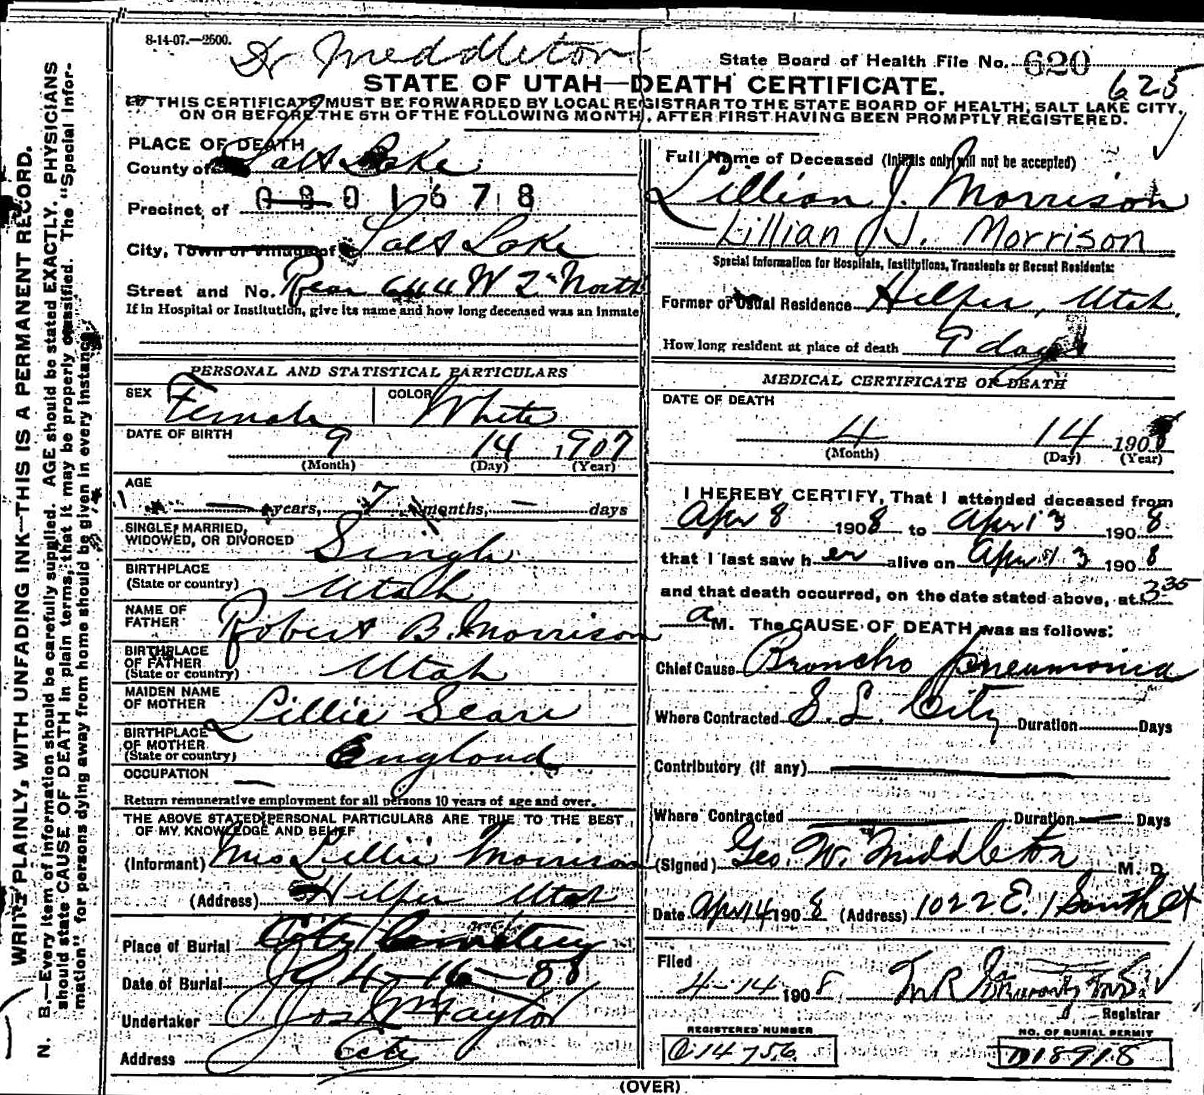 8-14-07.—2500.
Dr Meddleton
State Board of Health File No. 620
625
STATE OF UTAH—DEATH CERTIFICATE.
THIS CERTIFICATE MUST BE FORWARDED BY LOCAL REGISTRAR TO THE STATE BOARD OF HEALTH, SALT LAKE CITY,
ON OR BEFORE THE 5TH OF THE FOLLOWING MONTH, AFTER FIRST HAVING BEEN PROMPTLY REGISTERED.
WRITE PLAINLY, WITH UNFADING INK—THIS IS A PERMANENT RECORD.
N. B.—Every item of information should be carefully supplied. AGE should be stated EXACTLY. PHYSICIANS
should state CAUSE OF DEATH in plain terms, that it may be properly classified. The "Special Infor-
mation" for persons dying away from home should be given in every instance.
PLACE OF DEATH
County of Salt Lake
Precinct of 0801678
City, Town or Village of Salt Lake
Street and No. Rear 644 W 2nd North
If in Hospital or Institution, give its name and how long deceased was an inmate
PERSONAL AND STATISTICAL PARTICULARS
SEX Female COLOR White
DATE OF BIRTH 9 14 1907
(Month) (Day) (Year)
AGE
— years, 7 months, — days
SINGLE, MARRIED,
WIDOWED, OR DIVORCED Single
BIRTHPLACE
(State or country) Utah
NAME OF
FATHER Robert B. Morrison
BIRTHPLACE
OF FATHER
(State or country) Utah
MAIDEN NAME
OF MOTHER Lillie Sears
BIRTHPLACE
OF MOTHER
(State or country) England
OCCUPATION —
Return remunerative employment for all persons 10 years of age and over.
THE ABOVE STATED PERSONAL PARTICULARS ARE TRUE TO THE BEST
OF MY KNOWLEDGE AND BELIEF
(Informant) Mrs Lillie Morrison
(Address) Helper Utah
Place of Burial City Cemetery
Date of Burial 4-16-08
Undertaker Jos Wm Taylor
Address City
Full Name of Deceased (Initials only will not be accepted)
Lillian J. Morrison
Lillian J. Morrison
Special Information for Hospitals, Institutions, Transients or Recent Residents:
Former or Usual Residence Helper, Utah.
How long resident at place of death 9 days
MEDICAL CERTIFICATE OF DEATH
DATE OF DEATH
4 14 1908
(Month) (Day) (Year)
I HEREBY CERTIFY, That I attended deceased from
Apr 8 1908 to Apr 13 1908
that I last saw her alive on Apr 13 1908
and that death occurred, on the date stated above, at 3 35
a M. The CAUSE OF DEATH was as follows:
Chief Cause Broncho pneumonia
Where Contracted S. L. City Duration Days
Contributory (if any)
Where Contracted Duration Days
(Signed) Geo. W. Middleton M. D.
Date Apr 14 1908 (Address) 1022 E. 1 South st
Filed
4-14 1908
Registrar
REGISTERED NUMBER
C 14756
NO. OF BURIAL PERMIT
D18918
(OVER)